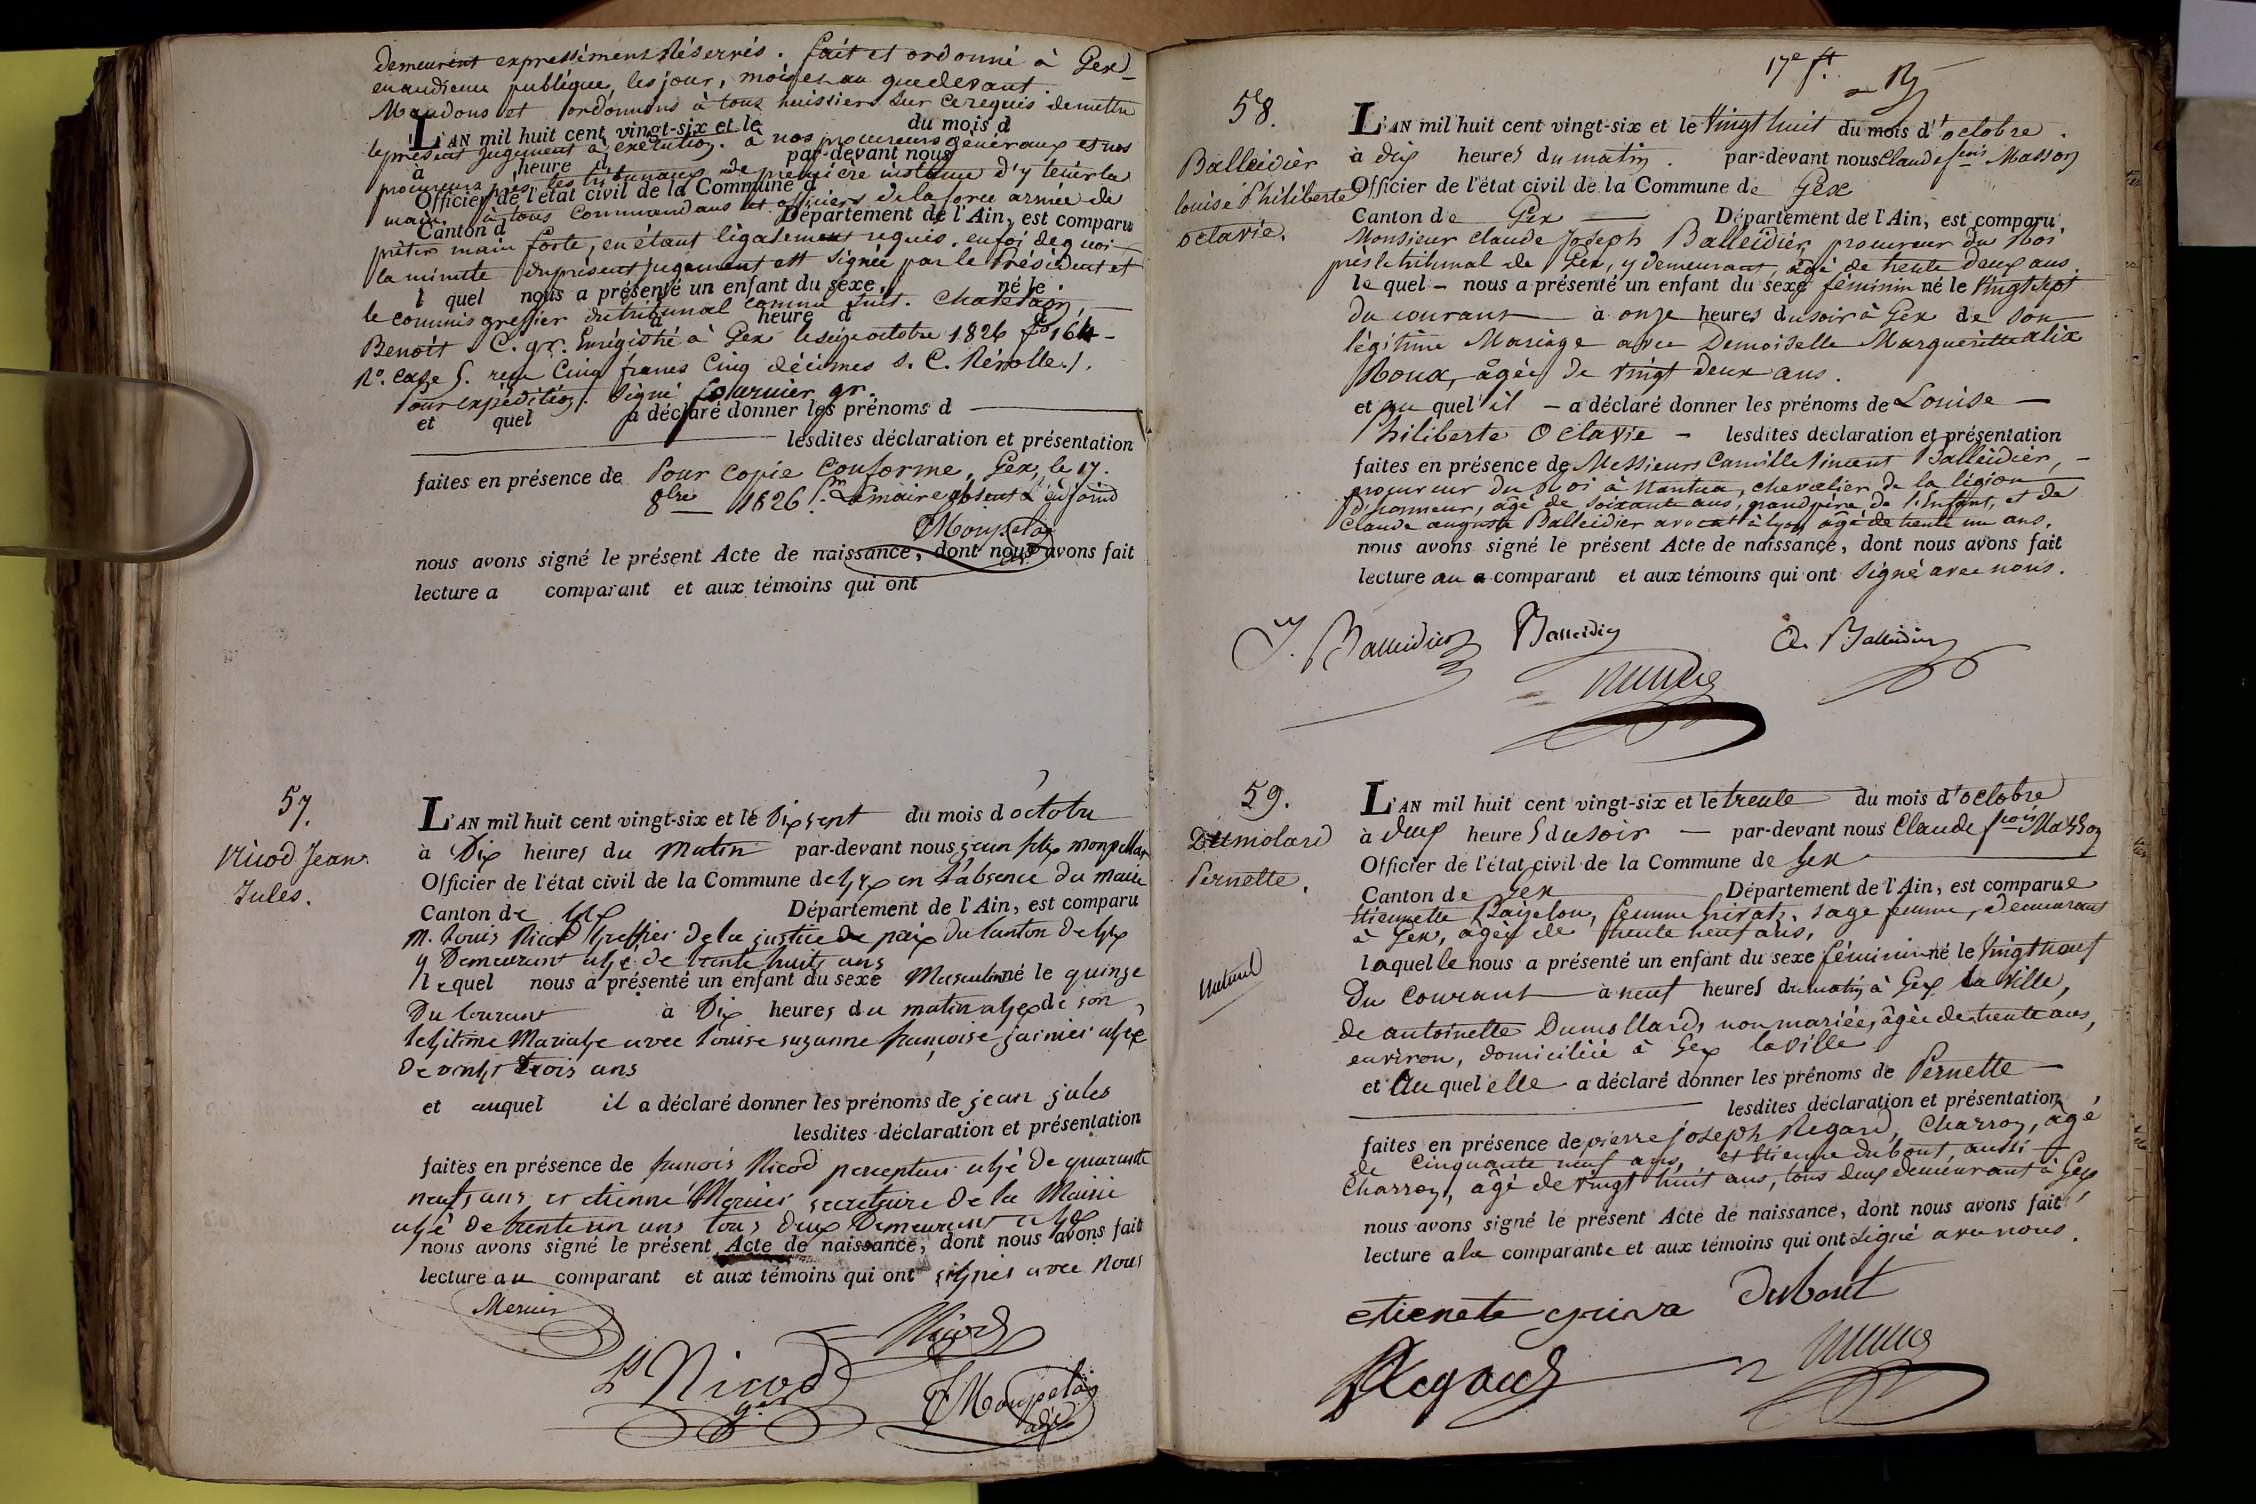 demeurent expressément Réservés. fait et ordonné à Gex
en audience publique, les jour, mois et an que devant.
Mandons et ordonnons à tous huissiers sur ce requis de mettre
L'AN mil huit cent vingt-six et le du mois d
le présent jugement à exécution. à nos procureurs généraux et nos
à heure d par-devant nous
procureurs près les tribunaux de première instance d'y tenir la
Officier de l'état civil de la Commune d
main, à tous Commandans et officiers de la force armée de
Canton d Département de l'Ain, est comparu
prêter main forte, en étant légalement requis. en foi de quoi
la minute du présent jugement est signée par le Président et
l quel nous a présenté un enfant du sexe né le
le commis greffier du tribunal comme suit.
à heure d
Benoit C. gr. Enrégistré à Gex le seize octobre 1826 fo 164
No. case 5. reçu Cinq francs Cinq décimes s. C. Révolle./.
Pour expédition. Signé fournier gr.
et quel a déclaré donner les prénoms d
lesdites déclaration et présentation
faites en présence de Pour copie Conforme, Gex, le 17.
8bre 1826. Le maire absent L'adjoint
nous avons signé le présent Acte de naissance, dont nous avons fait
lecture a comparant et aux témoins qui ont
57.
Nicod Jean
Jules.
L'AN mil huit cent vingt-six et le Dix sept du mois d'octobre
à Dix heures du Matin par-devant nous jean felix monpellas
Officier de l'état civil de la Commune de Gex en l'absence du maire
Canton de Gex Département de l'Ain, est comparu
M. Louis Nicod Greffier de la justice de paix du Canton de Gex
y Demeurant agé de trente huit ans
lequel nous a présenté un enfant du sexe Masculin né le quinze
Du Courant à Dix heures du matin a Gex de son
legitime Mariage avec Louise suzanne françoise
De vingt trois ans
et auquel il a déclaré donner les prénoms de jean jules
lesdites déclaration et présentation
faites en présence de francois Nicod percepteur agé de quarante
neuf ans et etienne Mercier secretaire de la Mairie
agé de trente un ans tous deux Demeurant a Gex
nous avons signé le présent Acte de naissance, dont nous avons fait
lecture au comparant et aux témoins qui ont signés avec Nous
Mercier
Nicod
Ls Nicod
gr
adjt
17e ft.
58.
Balleidier
louise Philiberte
octavie.
L'AN mil huit cent vingt-six et le Vingt huit du mois d'octobre.
à dix heures du matin. par-devant nous Claude fcois Masson
Officier de l'état civil de la Commune de Gex
Canton de Gex Département de l'Ain, est comparu
Monsieur Claude Joseph Balleidier, procureur du Roi
près le tribunal de Gex, y demeurant, âgé de trente deux ans
lequel nous a présenté un enfant du sexe féminin né le Vingt sept
du courant à onze heures du soir à Gex de son
légitime Mariage avec Demoiselle Marguerite alix
Roux, âgée de vingt deux ans.
et au quel il a déclaré donner les prénoms de Louise
Philiberte Octavie lesdites déclaration et présentation
faites en présence de Messieurs Camille Vincent Balleidier,
procureur du Roi à Nantua, chevalier de la légion
d'honneur, âgé de soixante ans, grand père de l'Enfant, et de
Claude auguste Balleidier avocat à lyon âgé de trente un ans.
nous avons signé le présent Acte de naissance, dont nous avons fait
lecture au comparant et aux témoins qui ont Signé avec nous.
J. Balleidier Balleidier A. Balleidier
59.
Dumolard
Pernette.
Naturel
L'AN mil huit cent vingt-six et le trente du mois d'octobre
à deux heures du soir par-devant nous Claude fcois Masson
Officier de l'état civil de la Commune de Gex
Canton de Gex Département de l'Ain, est comparue
Etiennette femme Grivat, sage femme, demeurant
à Gex, âgée de trente neuf ans,
laquelle nous a présenté un enfant du sexe féminin né le Vingt neuf
Du Courant à neuf heures du matin à Gex la Ville,
de antoinette Dumollard, non mariée, âgée de trente ans,
environ, domiciliée à Gex la Ville
et Au quel elle a déclaré donner les prénoms de Pernette
lesdites déclaration et présentation
faites en présence de pierre joseph Regard, Charron, âgé
de Cinquante neuf ans, et Etienne dubout, aussi
Charron, âgé de vingt huit ans, tous deux demeurant à Gex,
nous avons signé le présent Acte de naissance, dont nous avons fait
lecture a la comparante et aux témoins qui ont signé avec nous.
etienete griva Dubout
Regard